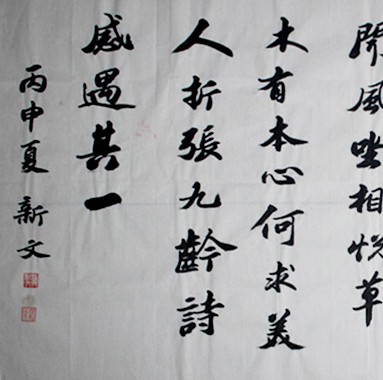 聞風坐相悦草
木有本心何求美
人折張九齡詩
感遇其一
丙申夏 新文